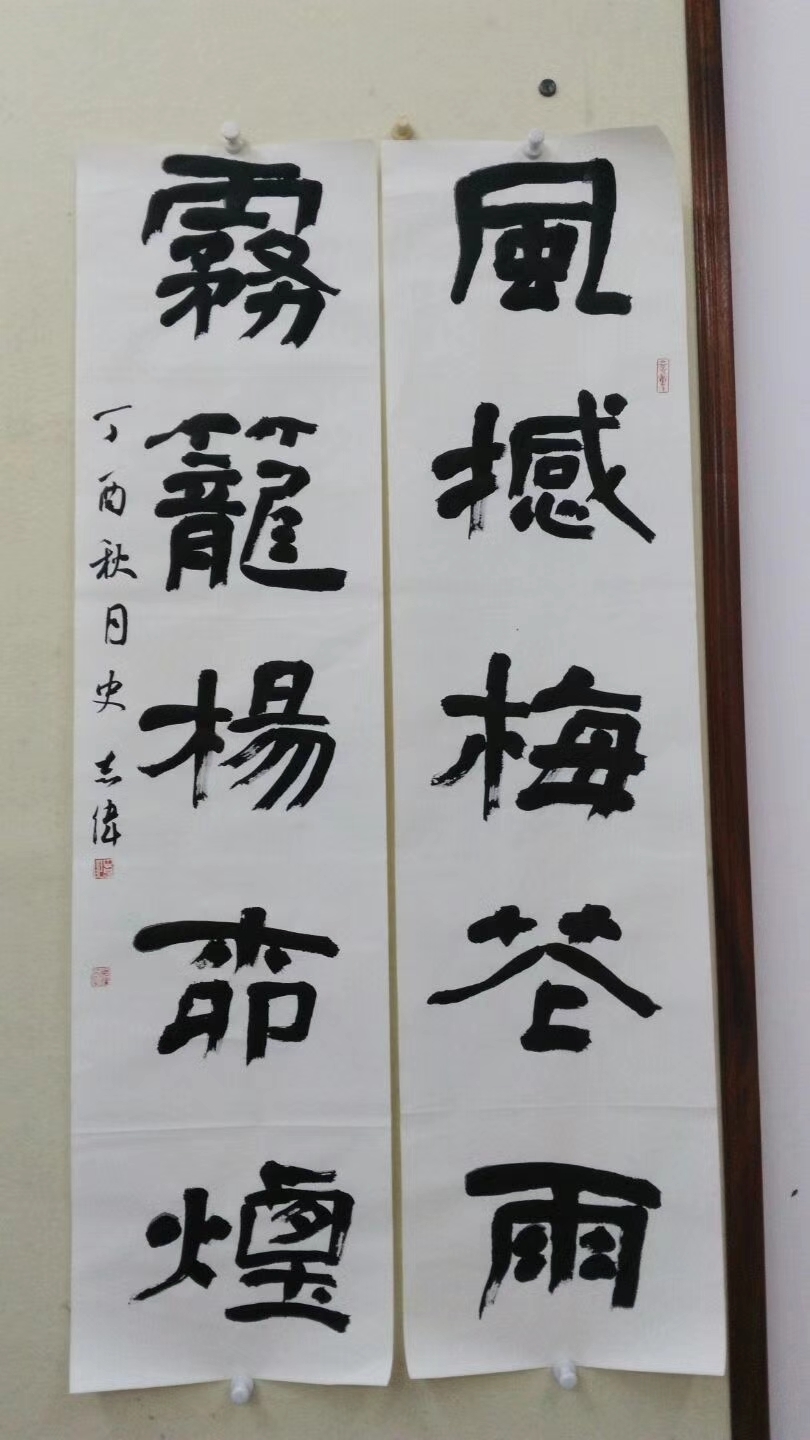 風撼梅花雨
霧籠楊柳煙
丁酉秋月史志偉